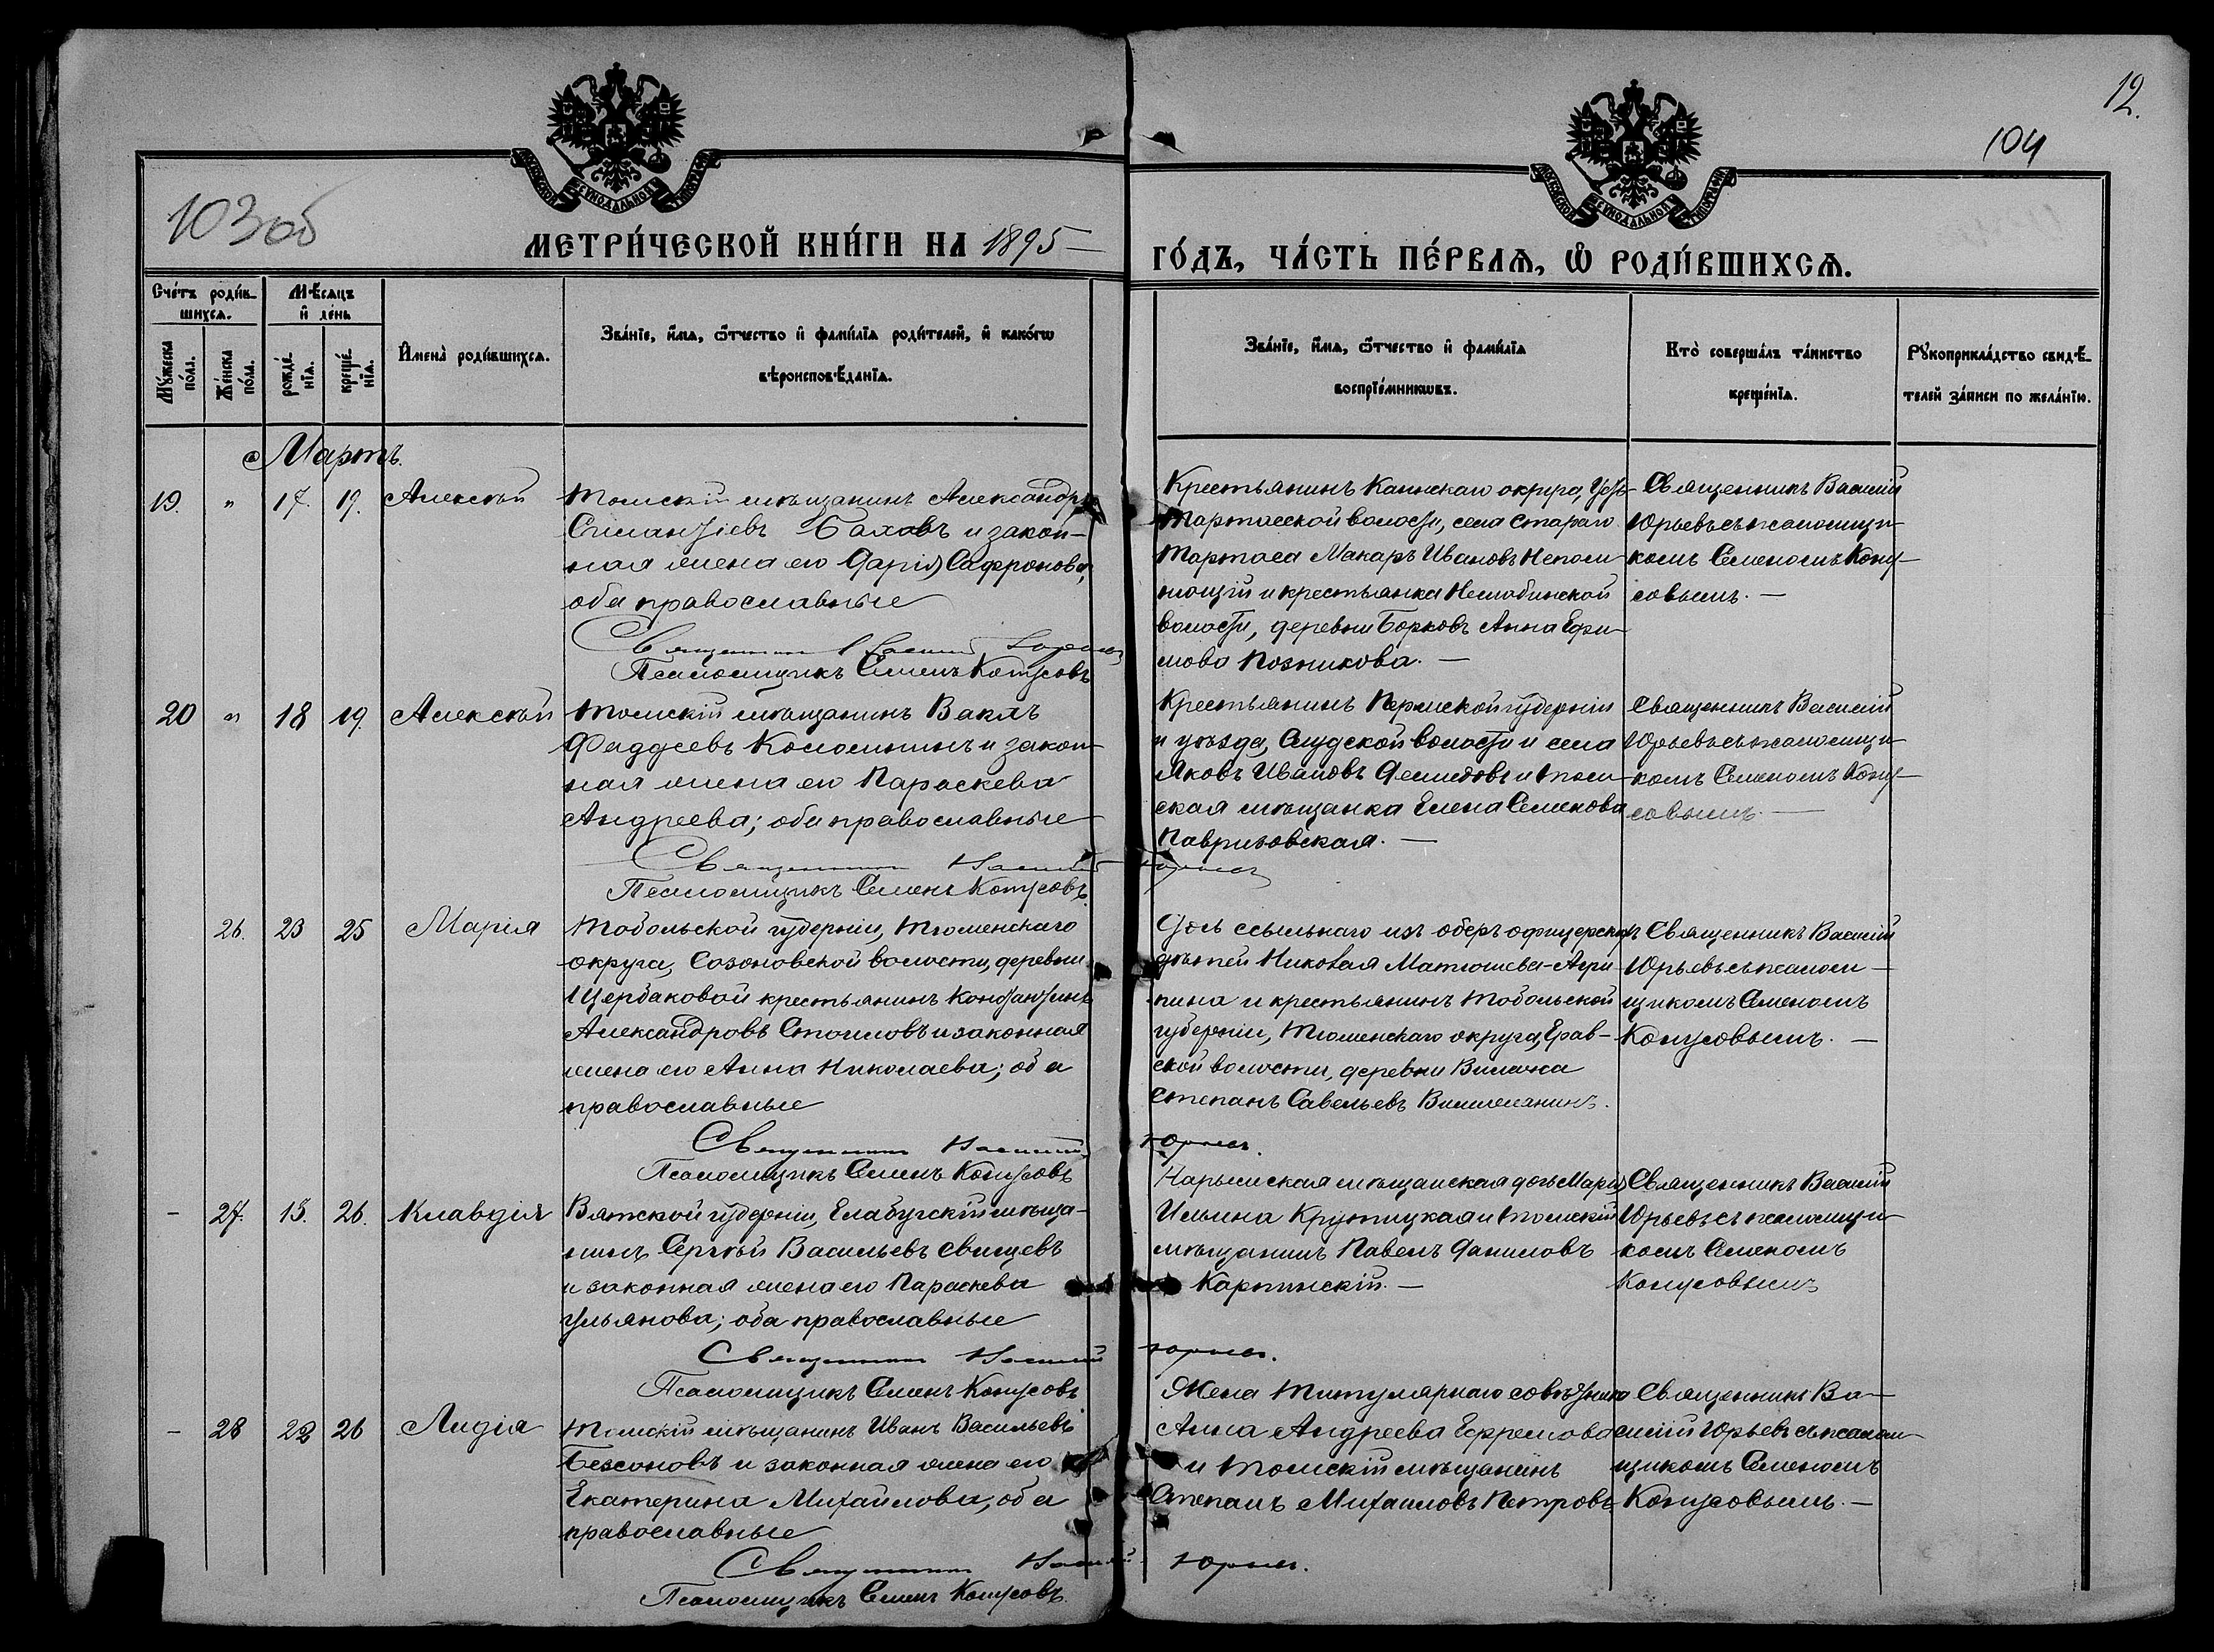 12.
104
103об
МЕТРИ́ЧЕСКОЙ КНИ́ГИ НА 1895
ГО́ДЪ, ЧА́СТЬ ПЕ́РВАѦ, Ѡ҆ РОДИ́ВШИХСѦ.
Сче́тъ роди́в-
шихсѧ.
Мꙋ́жеска по́ла.
Же́нска по́ла.
Мѣ́сѧцъ
и҆ де́нь
рожде́-
нїѧ.
креще́-
нїѧ.
И҆мена̀ роди́вшихсѧ.
Зва́нїе, и҆́мѧ, ѻ҆́тчество и҆ фами́лїѧ роди́телей, и҆ како́гѡ
вѣроисповѣ́данїѧ.
Зва́нїе, и҆́мѧ, ѻ҆́тчество и҆ фами́лїѧ
воспрїе́мникѡвъ.
Кто̀ соверша́лъ та́инство
креще́нїѧ.
Рꙋкоприкла́дство свидѣ́-
телей за́писи по жела́нїю.
Мартъ.
19. " 17. 19. Алексѣй
Томскій мѣщанинъ Александръ
Баховъ и закон-
ная жена его Дарія Сафронова,
оба православные
Священникъ Василій Юрьевъ
Псаломщикъ Семенъ Конусовъ
Крестьянинъ Каинскаго округа, Усть-
Тартасской волости, села Стараго
Тартаса Макаръ Ивановъ Непом-
нющій и крестьянка Нелюбинской
волости, деревни Борковъ Анна Ефи-
мова Позникова. —
Священникъ Василій
Юрьевъ съ псаломщи-
комъ Семеномъ Кону-
совымъ. —
20 " 18 19. Алексѣй
Томскій мѣщанинъ
Фаддеевъ Коломнинъ и закон-
ная жена его Параскева
Андреева; оба православные
Священникъ Василій Юрьевъ
Псаломщикъ Семенъ Конусовъ.
Крестьянинъ Пермской губерніи
и уѣзда, Слудской волости и села
Яковъ Ивановъ Демидовъ и том-
ская мѣщанка Елена Семенова
Священникъ Василій
Юрьевъ съ псаломщи-
комъ Семеномъ Кону-
совымъ. —
26. 23 25 Марія
Тобольской губерніи, Тюменскаго
округа, Созоновской волости, деревни
Щербаковой крестьянинъ Константинъ
Александровъ Стоиловъ и законная
жена его Анна Николаева; оба
православные
Священникъ Василій Юрьевъ.
Псаломщикъ Семенъ Конусовъ
Дочь ссыльнаго изъ оберъ офицерскихъ
дѣтей Николая Матюшева-Агри-
пина и крестьянинъ Тобольской
губерніи, Тюменскаго округа,
ской волости, деревни
Степанъ Савельевъ
Священникъ Василій
Юрьевъ съ псалом-
щикомъ Семеномъ
Конусовымъ. —
— 27. 15. 26. Клавдія
Вятской губерніи, Елабугскій мѣща-
нинъ Сергѣй Васильевъ Свищевъ
и законная жена его Параскева
Ульянова; оба православные
Священникъ Василій Юрьевъ.
Псаломщикъ Семенъ Конусовъ
Нарымская мѣщанская дочь Марія
Ильина Крутицкая и томскій
мѣщанинъ Павелъ Даниловъ
Картинскій. —
Священникъ Василій
Юрьевъ съ псаломщи-
комъ Семеномъ
Конусовымъ
— 28 22 26 Лидія
Томскій мѣщанинъ Иванъ Васильевъ
Безсоновъ и законная жена его
Екатерина Михайлова, оба
православные
Священникъ Василій Юрьевъ.
Псаломщикъ Семенъ Конусовъ.
Жена титулярнаго совѣтника
Анна Андреева Ефремова
и Томскій мѣщанинъ
Степанъ Михаиловъ Петровъ
Священникъ Ва-
силій Юрьевъ съ псалом-
щикомъ Семеномъ
Конусовымъ. —